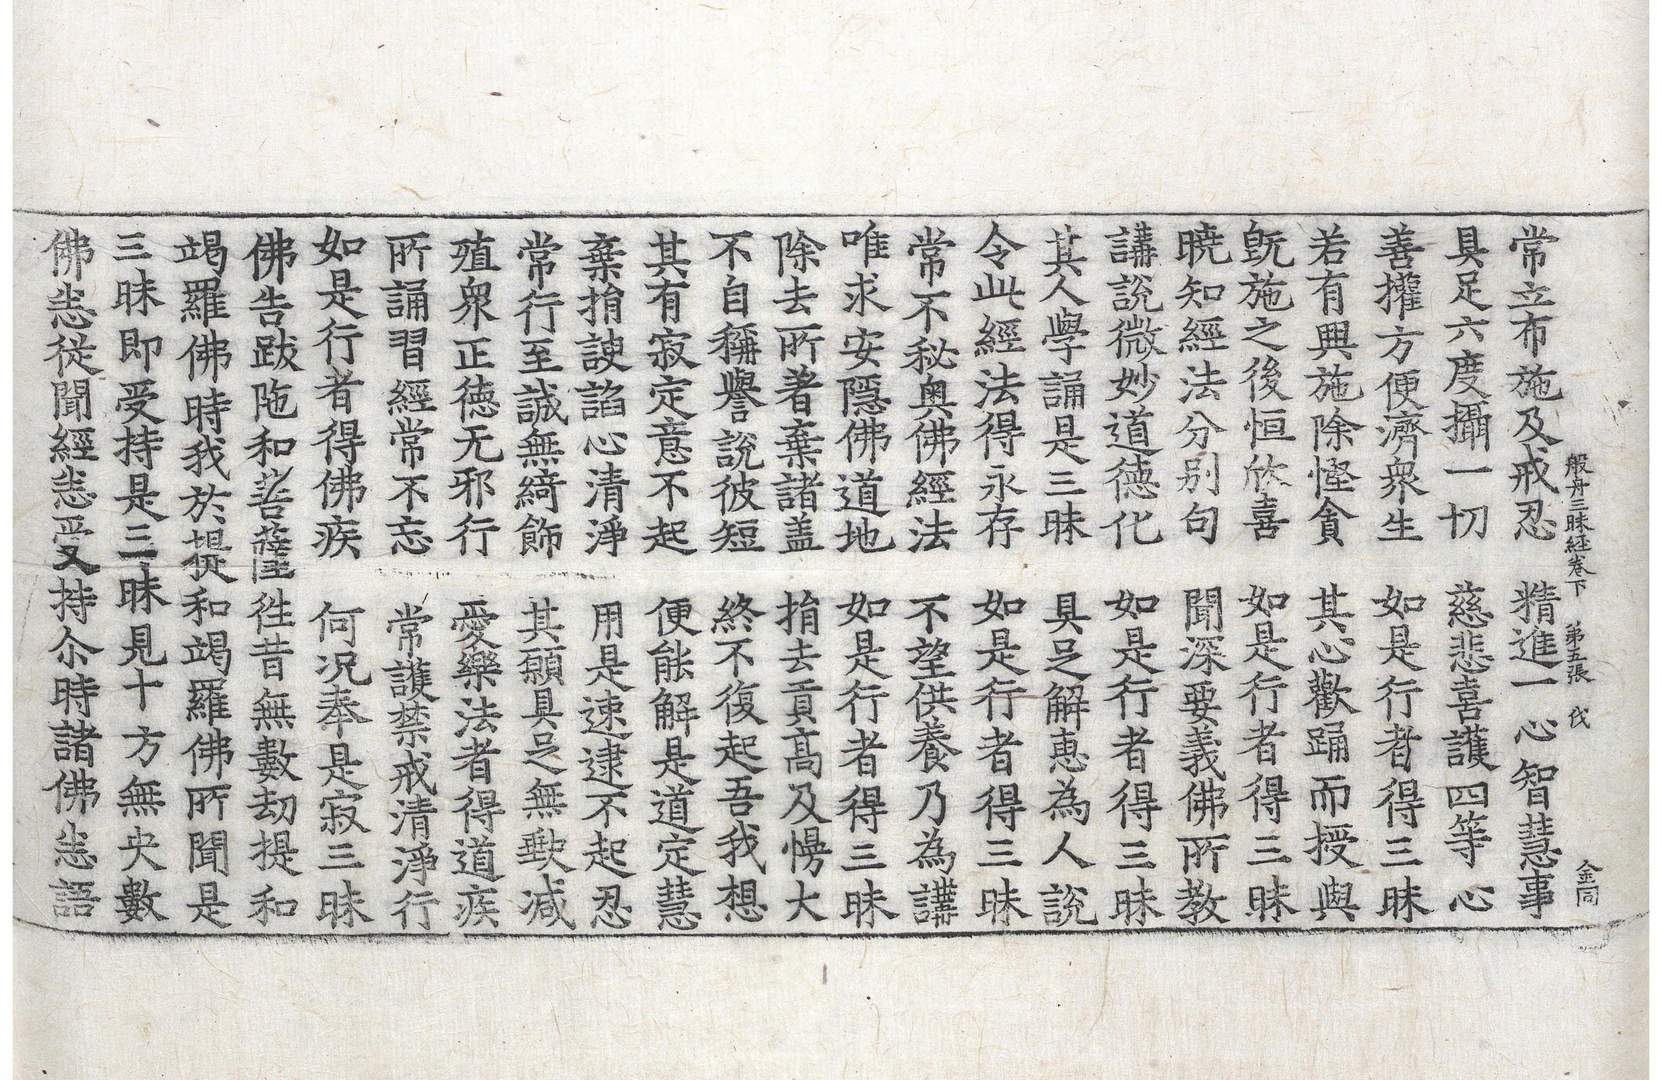 般舟三昧経卷下 第五張 伐 金同
常立布施及戒忍 精進一心智慧事
具足六度攝一切 慈悲喜護四等心
善攉方便濟衆生 如是行者得三昧
若有興施除慳貪 其心歡踊而授與
旣施之後恒欣喜 如是行者得三昧
曉知經法分別句 聞深要義佛所教
講說微妙道德化 如是行者得三昧
其人學誦是三昧 具足解惠為人說
令此經法得永存 如是行者得三昧
常不秘奥佛經法 不望供養乃為講
唯求安隱佛道地 如是行者得三昧
除去所著棄諸盖 捎去貢高及慢大
不自稱譽說彼短 終不復起吾我想
其有寂定意不起 便能解是道定慧
棄捎諛諂心清淨 用是速逮不起忍
常行至誠無綺飾 其願具足無㱁减
殖衆正德无邪行 愛樂法者得道疾
所誦習經常不忘 常護禁戒清淨行
如是行者得佛疾 何况奉是寂三昧
佛告跋陁和菩薩徃昔無數劫提和
竭羅佛時我於提和竭羅佛所聞是
三昧即受持是三昧見十方無央數
佛悉從聞經悉受持尒時諸佛悉語